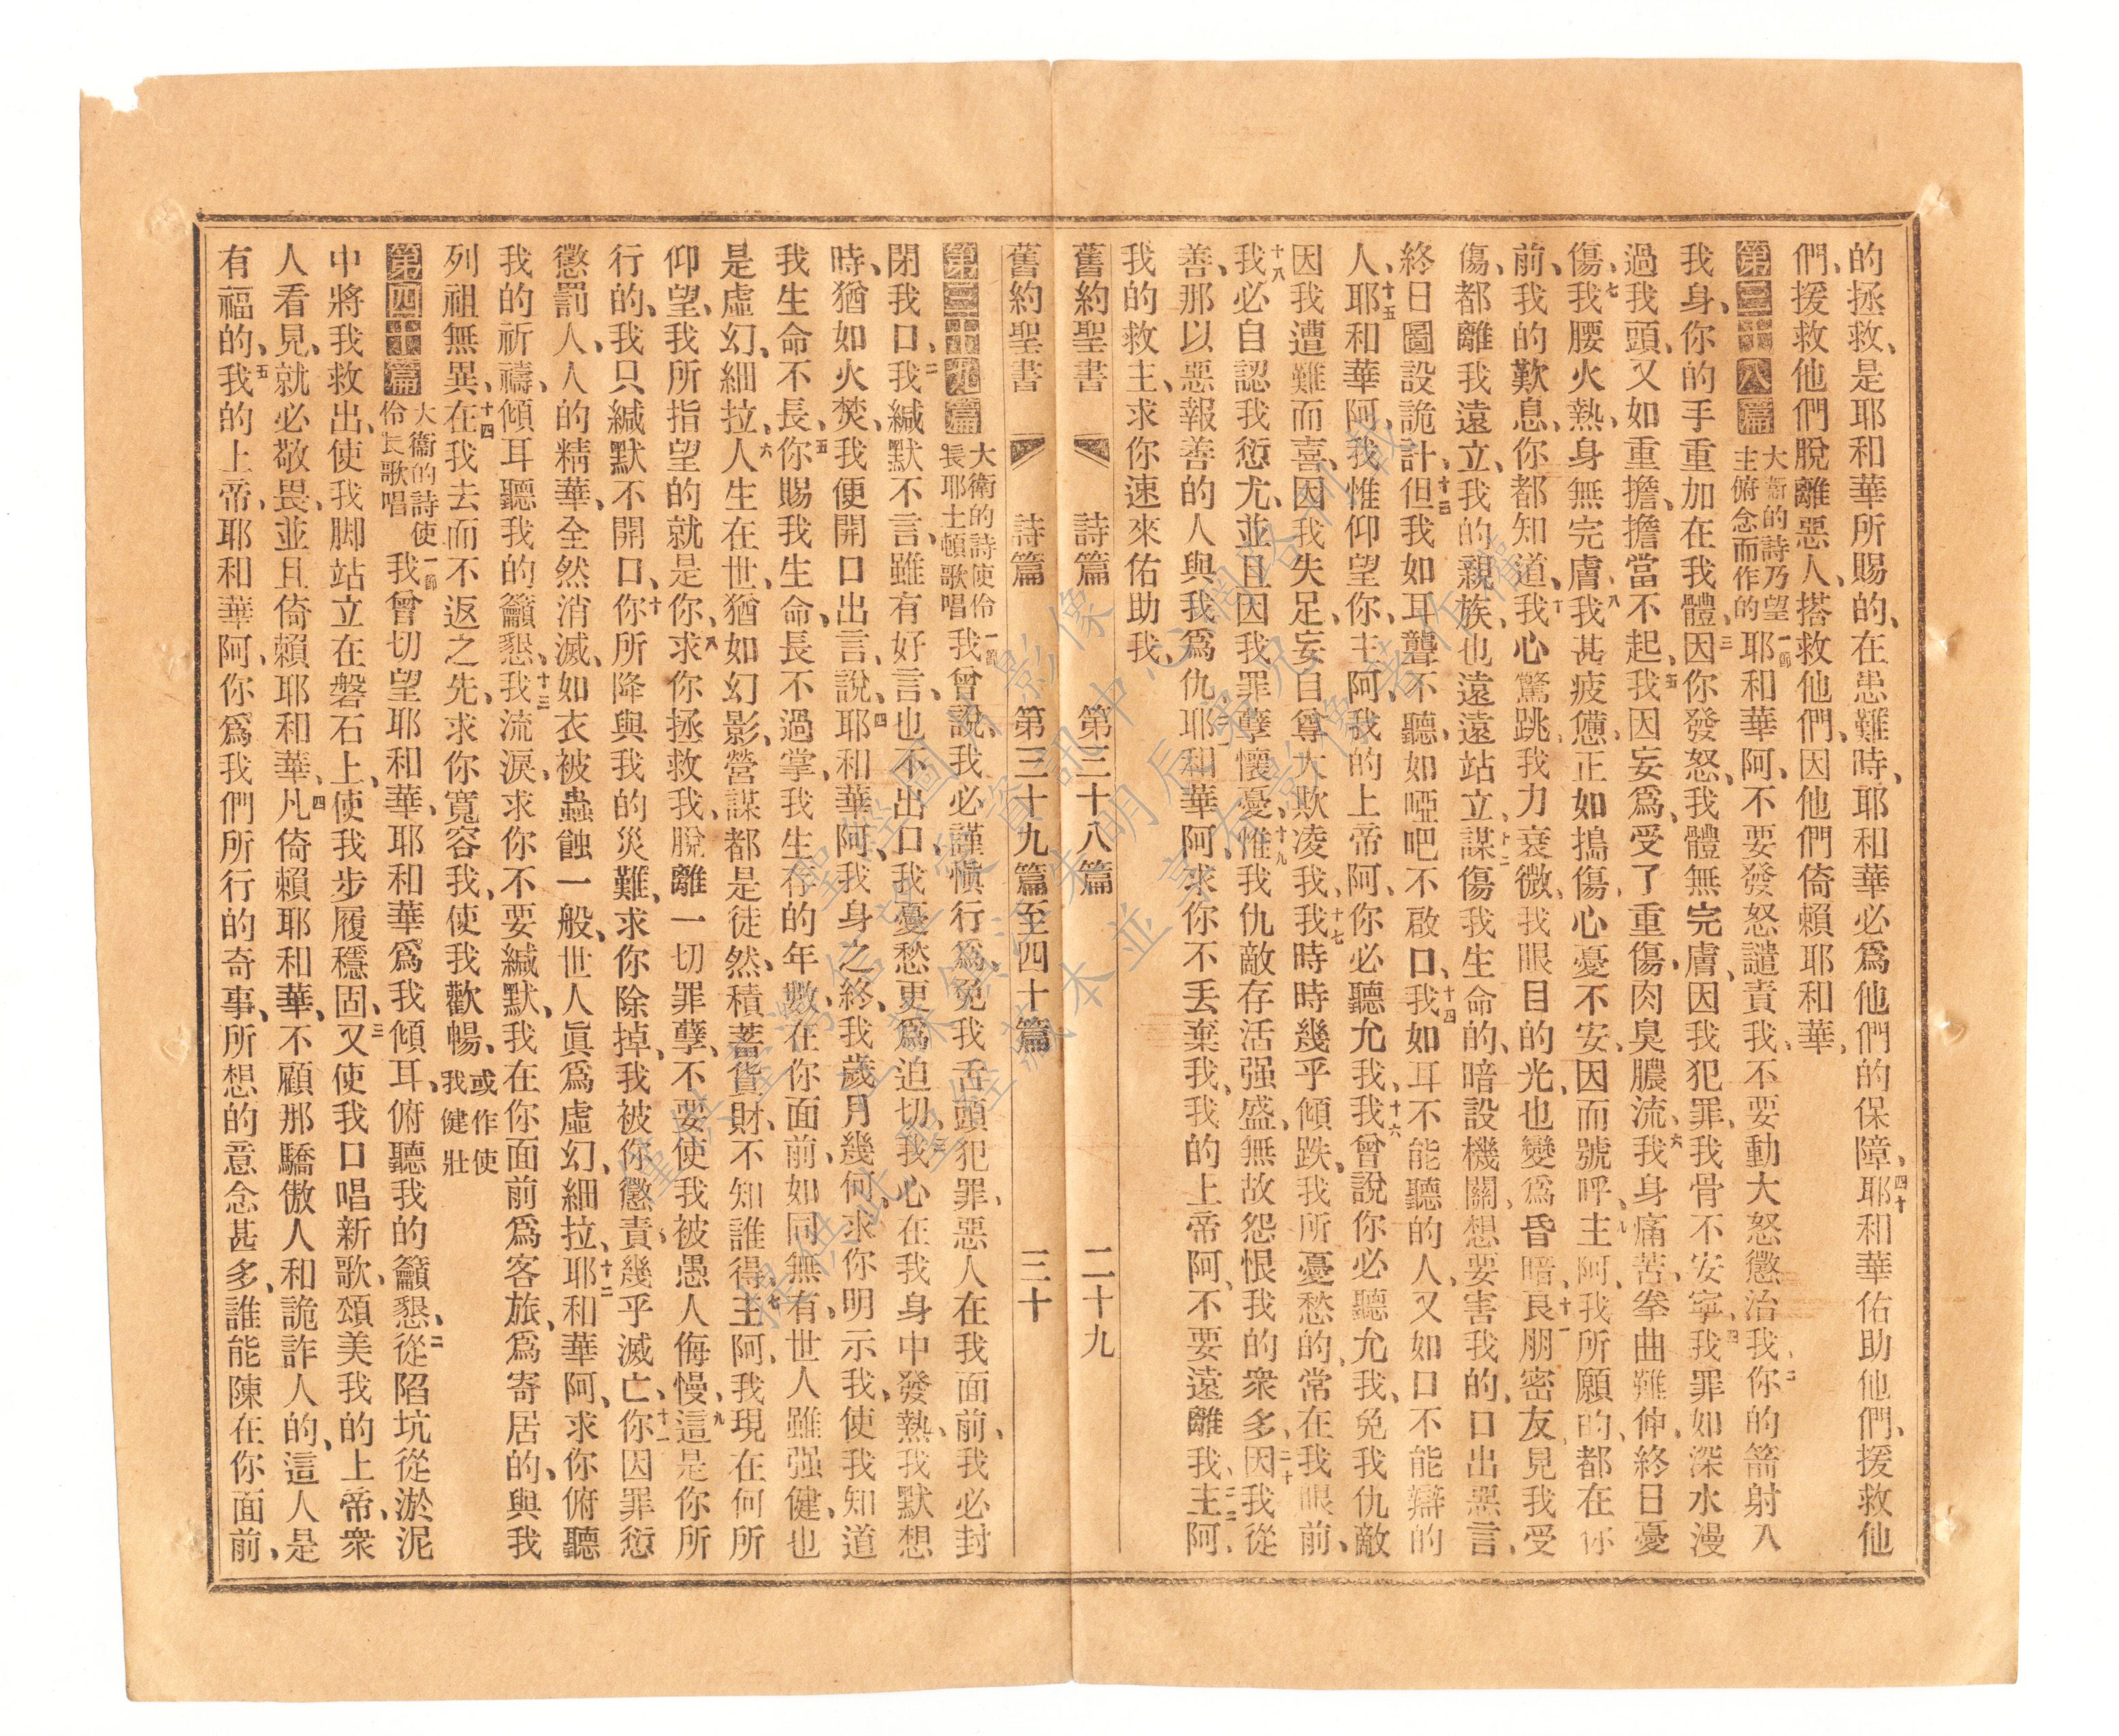 的拯救、是耶和華所賜的、在患難時、耶和華必爲他們的保障、四十耶和華佑助他們、援救他
們、援救他們脫離惡人、搭救他們、因他們倚賴耶和華、
第三十八篇 大衞的詩乃望主俯念而作的 一節耶和華阿、不要發怒譴責我、不要動大怒懲治我、二你的箭射入
我身、你的手重加在我體、三因你發怒、我體無完膚、因我犯罪、我骨不安寧、四我罪如深水漫
過我頭、又如重擔、擔當不起、五我因妄爲、受了重傷、肉臭膿流、六我身痛苦、拳曲難伸、終日憂
傷、七我腰火熱、身無完膚、八我甚疲憊、正如搗傷、心憂不安、因而號呼、九主阿、我所願的、都在你
前、我的歎息、你都知道、十我心驚跳、我力衰微、我眼目的光、也變爲昏暗、十一良朋密友、見我受
傷、都離我遠立、我的親族、也遠遠站立、十二謀傷我生命的、暗設機關、想要害我的、口出惡言、
終日圖設詭計、十三但我如耳聾不聽、如啞吧不啟口、十四我如耳不能聽的人、又如口不能辯的
人、十五耶和華阿、我惟仰望你、主阿、我的上帝阿、你必聽允我、十六我曾說你必聽允我、免我仇敵
因我遭難而喜、因我失足、妄自尊大欺凌我、十七我時時幾乎傾跌、我所憂愁的、常在我眼前、
十八我必自認我愆尤、並且因我罪孽懷憂、十九惟我仇敵存活强盛、無故怨恨我的衆多、二十因我從
善、那以惡報善的人與我爲仇、二一耶和華阿、求你不丟棄我、我的上帝阿、不要遠離我、二二主阿、
我的救主、求你速來佑助我、
舊約聖書 詩篇 第三十八篇 二十九
舊約聖書 詩篇 第三十九篇至四十篇 三十
第三十九篇 大衛的詩使伶長耶士頓歌唱 一節我曾說、我必謹愼行爲、免我舌頭犯罪、惡人在我面前、我必封
閉我口、二我緘默不言、雖有好言、也不出口、我憂愁更爲迫切、三我心在我身中發熱、我默想
時、猶如火焚、我便開口出言、說、四耶和華阿、我身之終、我歲月幾何、求你明示我、使我知道
我生命不長、五你賜我生命、長不過掌、我生存的年數、在你面前、如同無有、世人雖强健、也
是虛幻、細拉、六人生在世、猶如幻影、營謀都是徒然、積蓄貨財、不知誰得、七主阿、我現在何所
仰望、我所指望的就是你、八求你拯救我、脫離一切罪孽、不要使我被愚人侮慢、九這是你所
行的、我只緘默不開口、十你所降與我的災難、求你除掉、我被你懲責、幾乎滅亡、十一你因罪愆
懲罰人、人的精華、全然消滅、如衣被蟲蝕一般、世人眞爲虛幻、細拉、十二耶和華阿、求你俯聽
我的祈禱、傾耳聽我的籲懇、十三我流淚、求你不要緘默、我在你面前爲客旅、爲寄居的、與我
列祖無異、十四在我去而不返之先、求你寬容我、使我歡暢、或作使我健壯
第四十篇 大衞的詩使伶長歌唱 一節我曾切望耶和華、耶和華爲我傾耳、俯聽我的籲懇、二從陷坑從淤泥
中將我救出、使我脚站立在磐石上、使我步履穩固、三又使我口唱新歌、頌美我的上帝、衆
人看見、就必敬畏、並且倚賴耶和華、四凡倚賴耶和華、不顧那驕傲人和詭詐人的、這人是
有福的、五我的上帝、耶和華阿、你爲我們所行的奇事、所想的意念甚多、誰能陳在你面前、